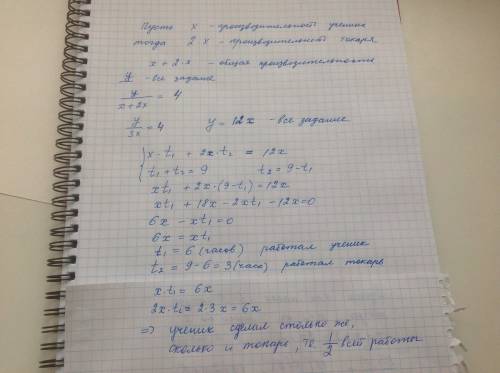 Пусть x – производительность ученик
тогда 2·x – производительность токаря
x + 2·x – общая производительность
y – все задание
y/(x+2x) = 4
y/3x = 4 y = 12x – все задание
{ x·t₁ + 2x·t₂ = 12x
t₁ + t₂ = 9 t₂ = 9-t₁
xt₁ + 2x·(9-t₁) = 12x
xt₁ + 18x - 2xt₁ - 12x = 0
6x - xt₁ = 0
6x = xt₁
t₁ = 6 (часов) работал ученик
t₂ = 9-6 = 3 (часа) работал токарь
x·t₁ = 6x
2x·t₂ = 2·3x = 6x
⇒ ученик сделал столько же,
сколько и токарь, те 1/2 всей работы